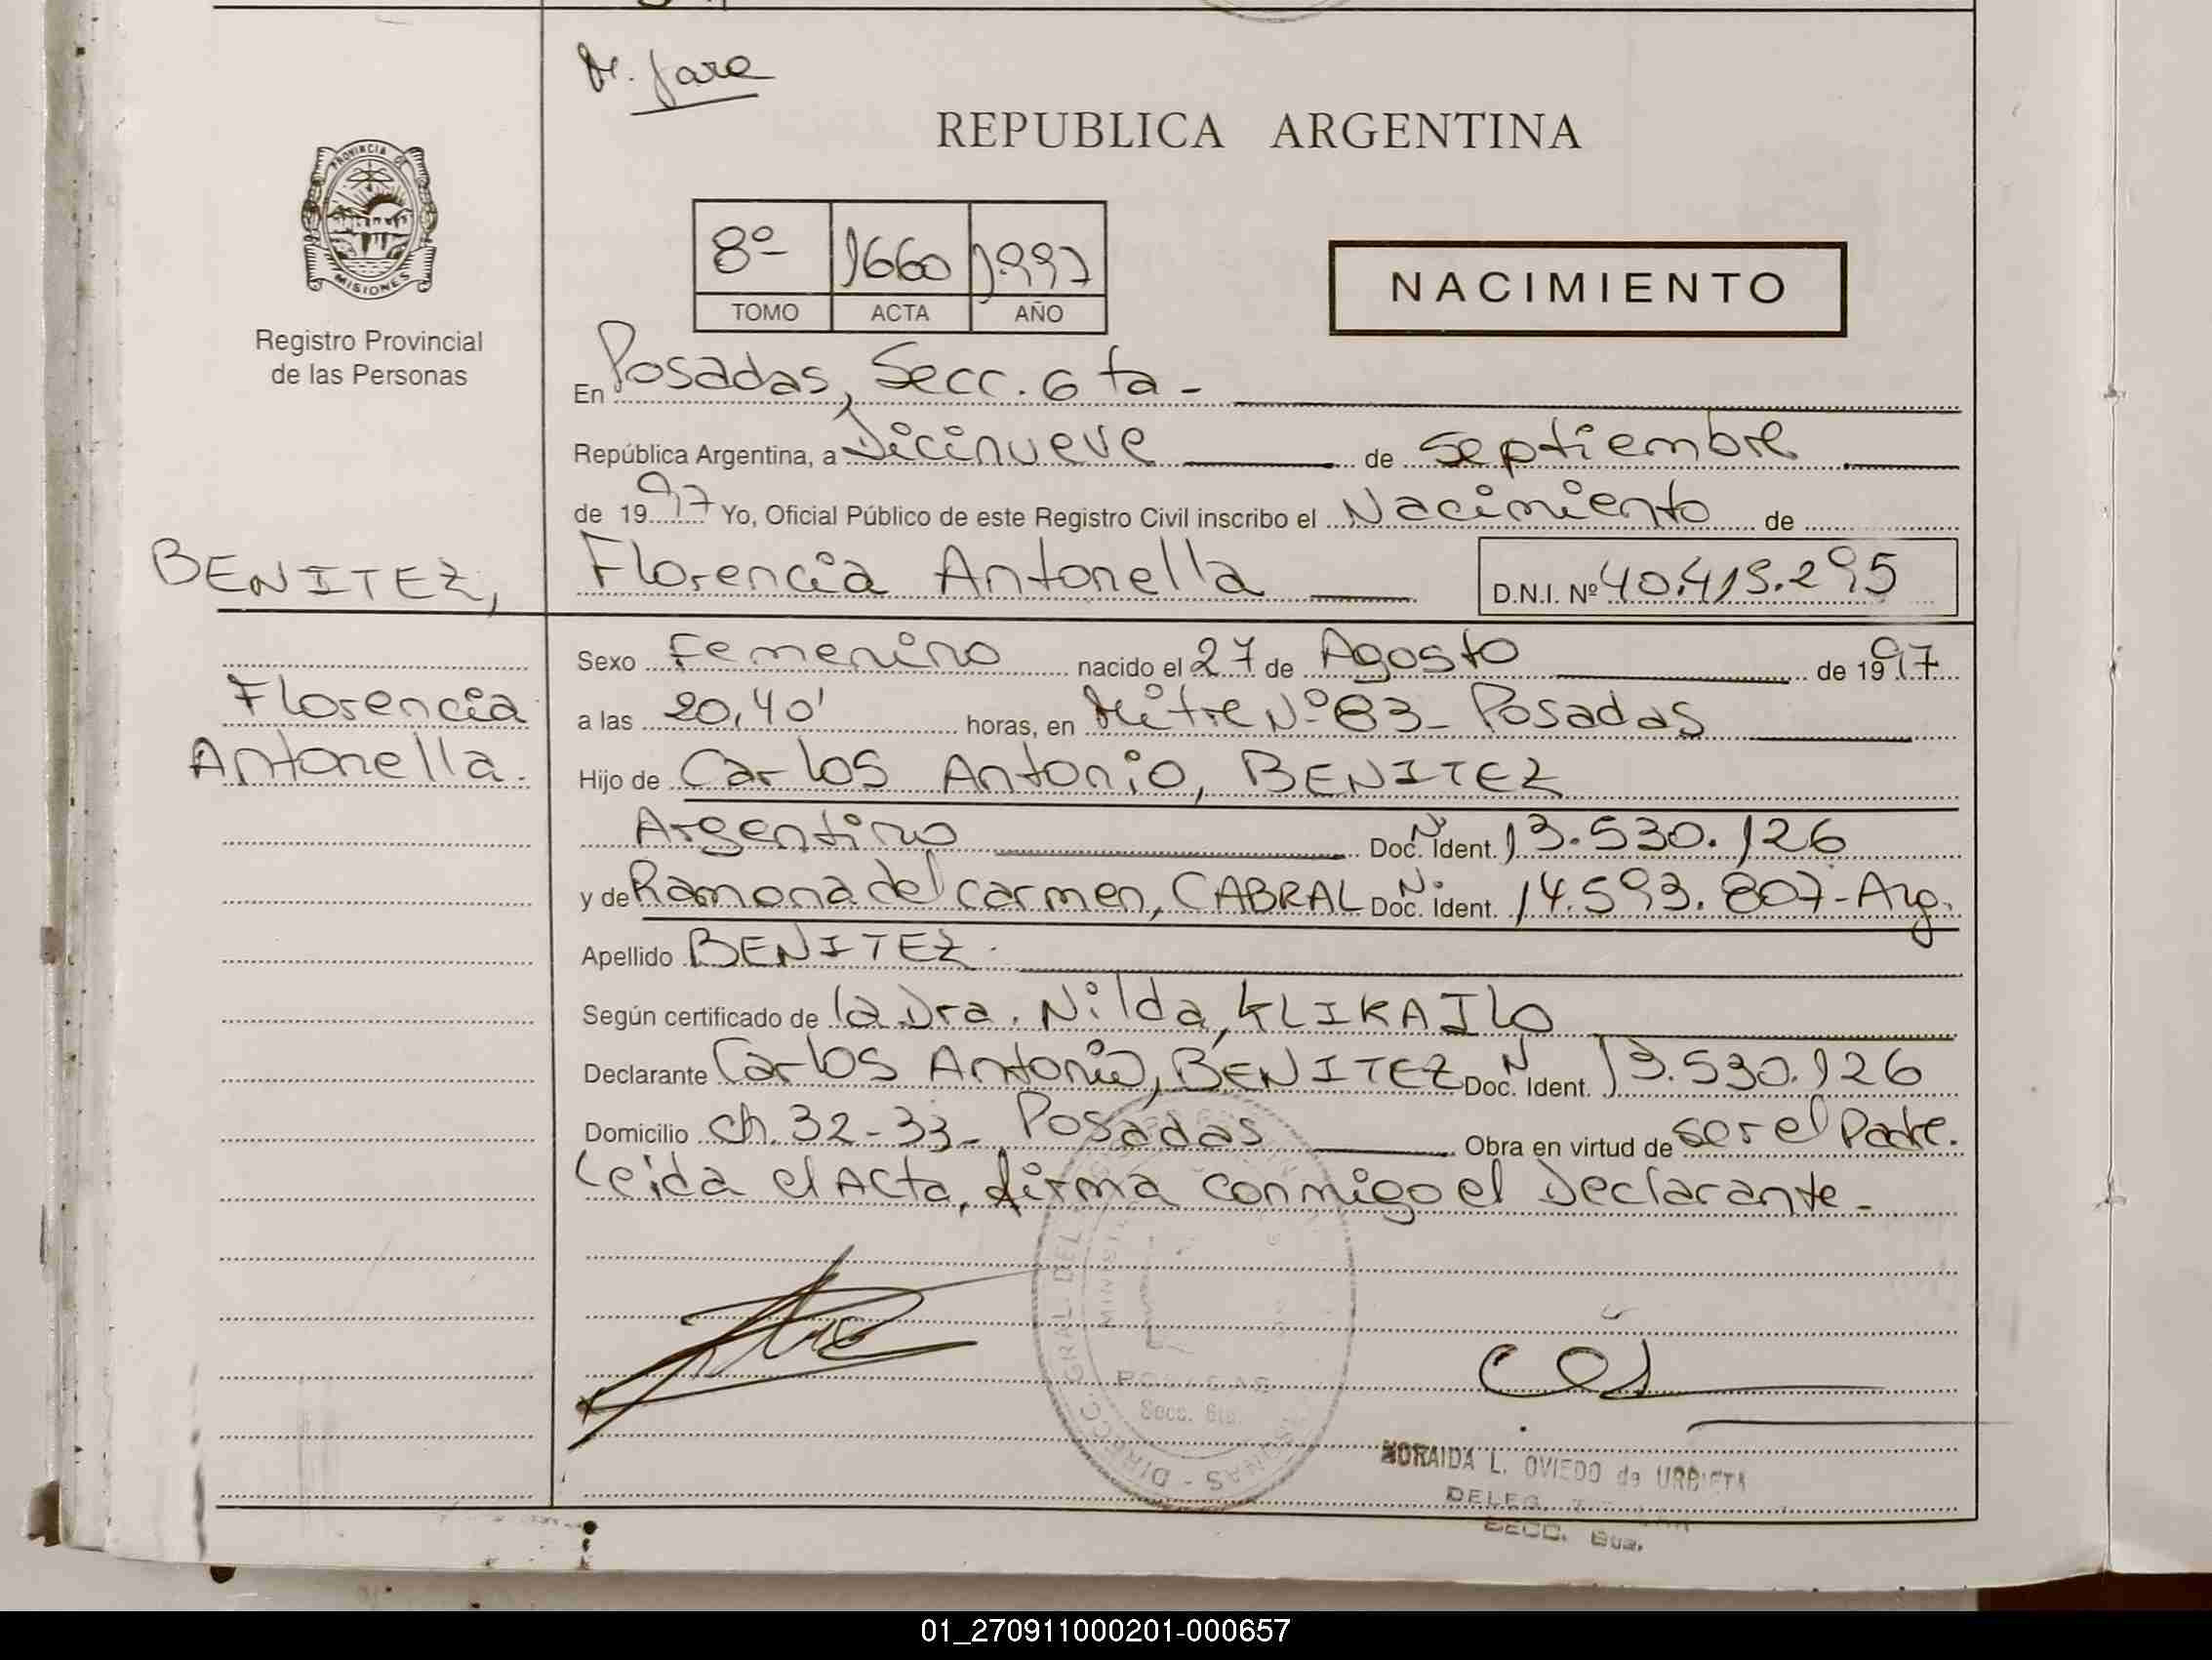 M. Jara
REPUBLICA ARGENTINA
PROVINCIA DE
MISIONES
Registro Provincial
de las Personas
8º 1660 1.997
TOMO ACTA AÑO
NACIMIENTO
En Posadas, Secc. 6 ta -
República Argentina, a Dicinueve de Septiembre
de 1997 Yo, Oficial Público de este Registro Civil inscribo el Nacimiento de
BENITEZ,
Florencia Antonella D.N.I. Nº 40.415.295
Florencia
Antonella.
Sexo Femenino nacido el 27 de Agosto de 1997
a las 20,40' horas, en Mitre Nº 83 - Posadas
Hijo de Carlos Antonio, BENITEZ
Argentino Doc. Ident. Nº 13.530.126
y de Ramona del Carmen, CABRAL Doc. Ident. Nº 14.593.807 - Arg.
Apellido BENITEZ.
Según certificado de la Dra. Nilda, KLIKAILO
Declarante Carlos Antonio, BENITEZ Doc. Ident. N 13.530.126
Domicilio ch. 32-33 - Posadas Obra en virtud de ser el Padre.
Leida el Acta, firma conmigo el Declarante -
DIRECC. GRAL. DEL
POSADAS
Secc. 6ta.
NORAIDA L. OVIEDO de URBIETA
SECC. 6ta.
01_270911000201-000657